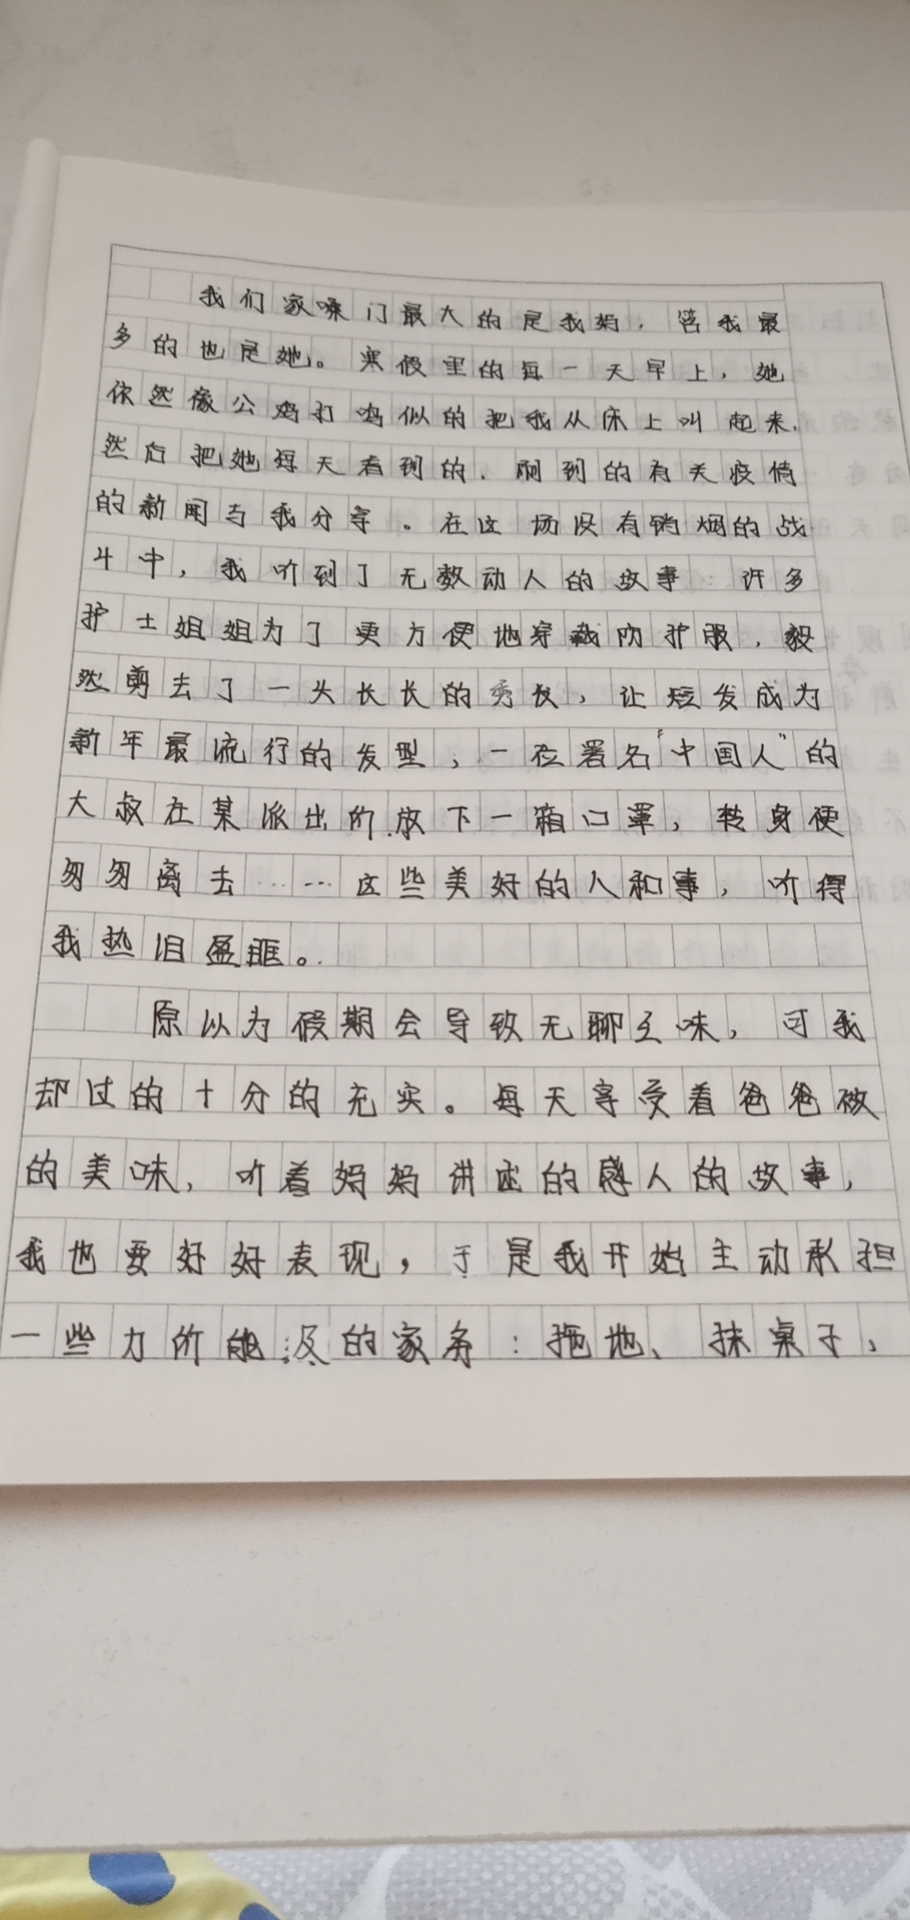 我们家嗓门最大的是我妈，管我最
多的也是她。寒假里的每一天早上，她
依然像公鸡打鸣似的把我从床上叫起来，
然后把她每天看到的，刷到的有关疫情
的新闻与我分享。在这场没有硝烟的战
斗中，我听到了无数动人的故事：许多
护士姐姐为了更方便地穿戴防护服，毅
然剪去了一头长长的秀长，让短发成为
新年最流行的发型，一位署名“中国人”的
大叔在某派出所放下一箱口罩，转身便
匆匆离去……这些美好的人和事，听得
我热泪盈眶。
原以为假期会导致无聊乏味，可我
却过的十分的充实。每天享受着爸爸做
的美味，听着妈妈讲述的感人的故事，
我也要好好表现，于是我开始主动承担
一些力所能及的家务：拖地、抹桌子，